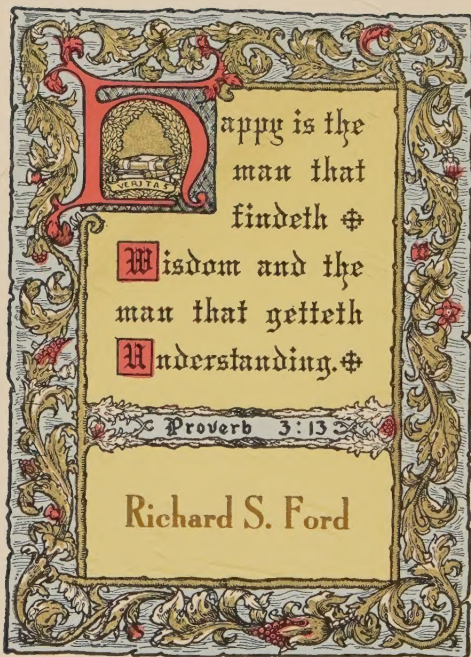 Happy is the
man that
findeth
Wisdom and the
man that getteth
Understanding.
VERITAS
Proverb 3:13
Richard S. Ford